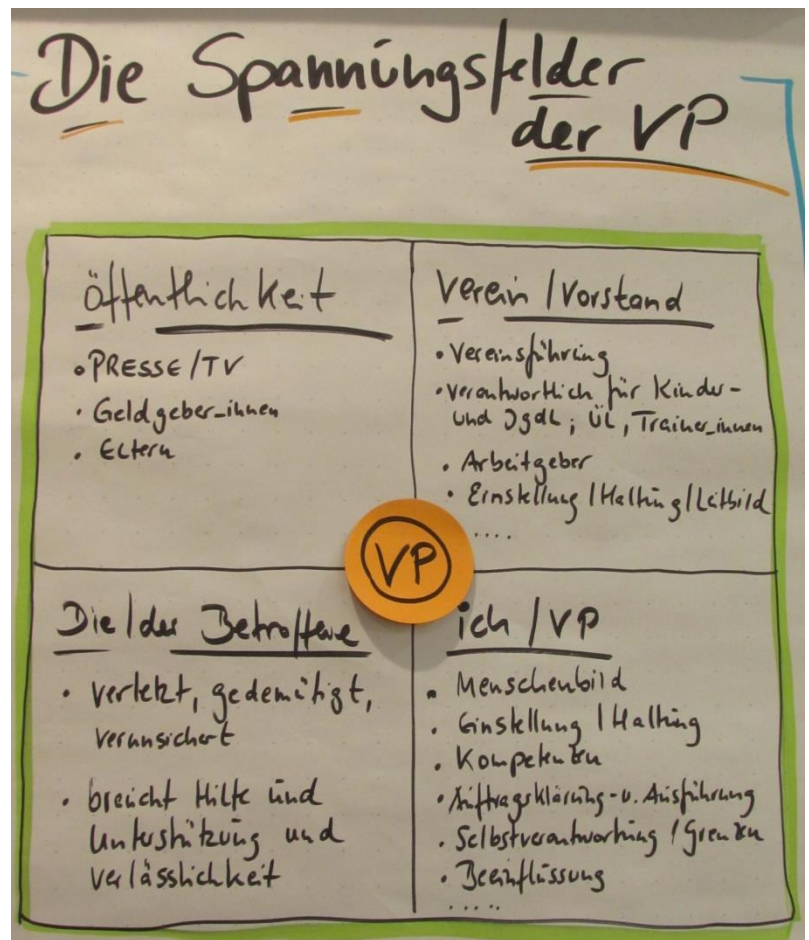 Die Spannungsfelder
der VP
Öffentlichkeit
• PRESSE/TV
• Geldgeber_innen
• Eltern
Verein / Vorstand
• Vereinsführung
• verantwortlich für Kinder-
und Jgdl; ÜL, Trainer_innen
• Arbeitgeber
• Einstellung / Haltung / Leitbild
....
VP
Die / der Betroffene
• verletzt, gedemütigt,
verunsichert
• braucht Hilfe und
Unterstützung und
Verlässlichkeit
ich / VP
• Menschenbild
• Einstellung / Haltung
• Kompetenzen
• Auftragsklärung- u. Ausführung
• Selbstverantwortung / Grenzen
• Beeinflussung
.....